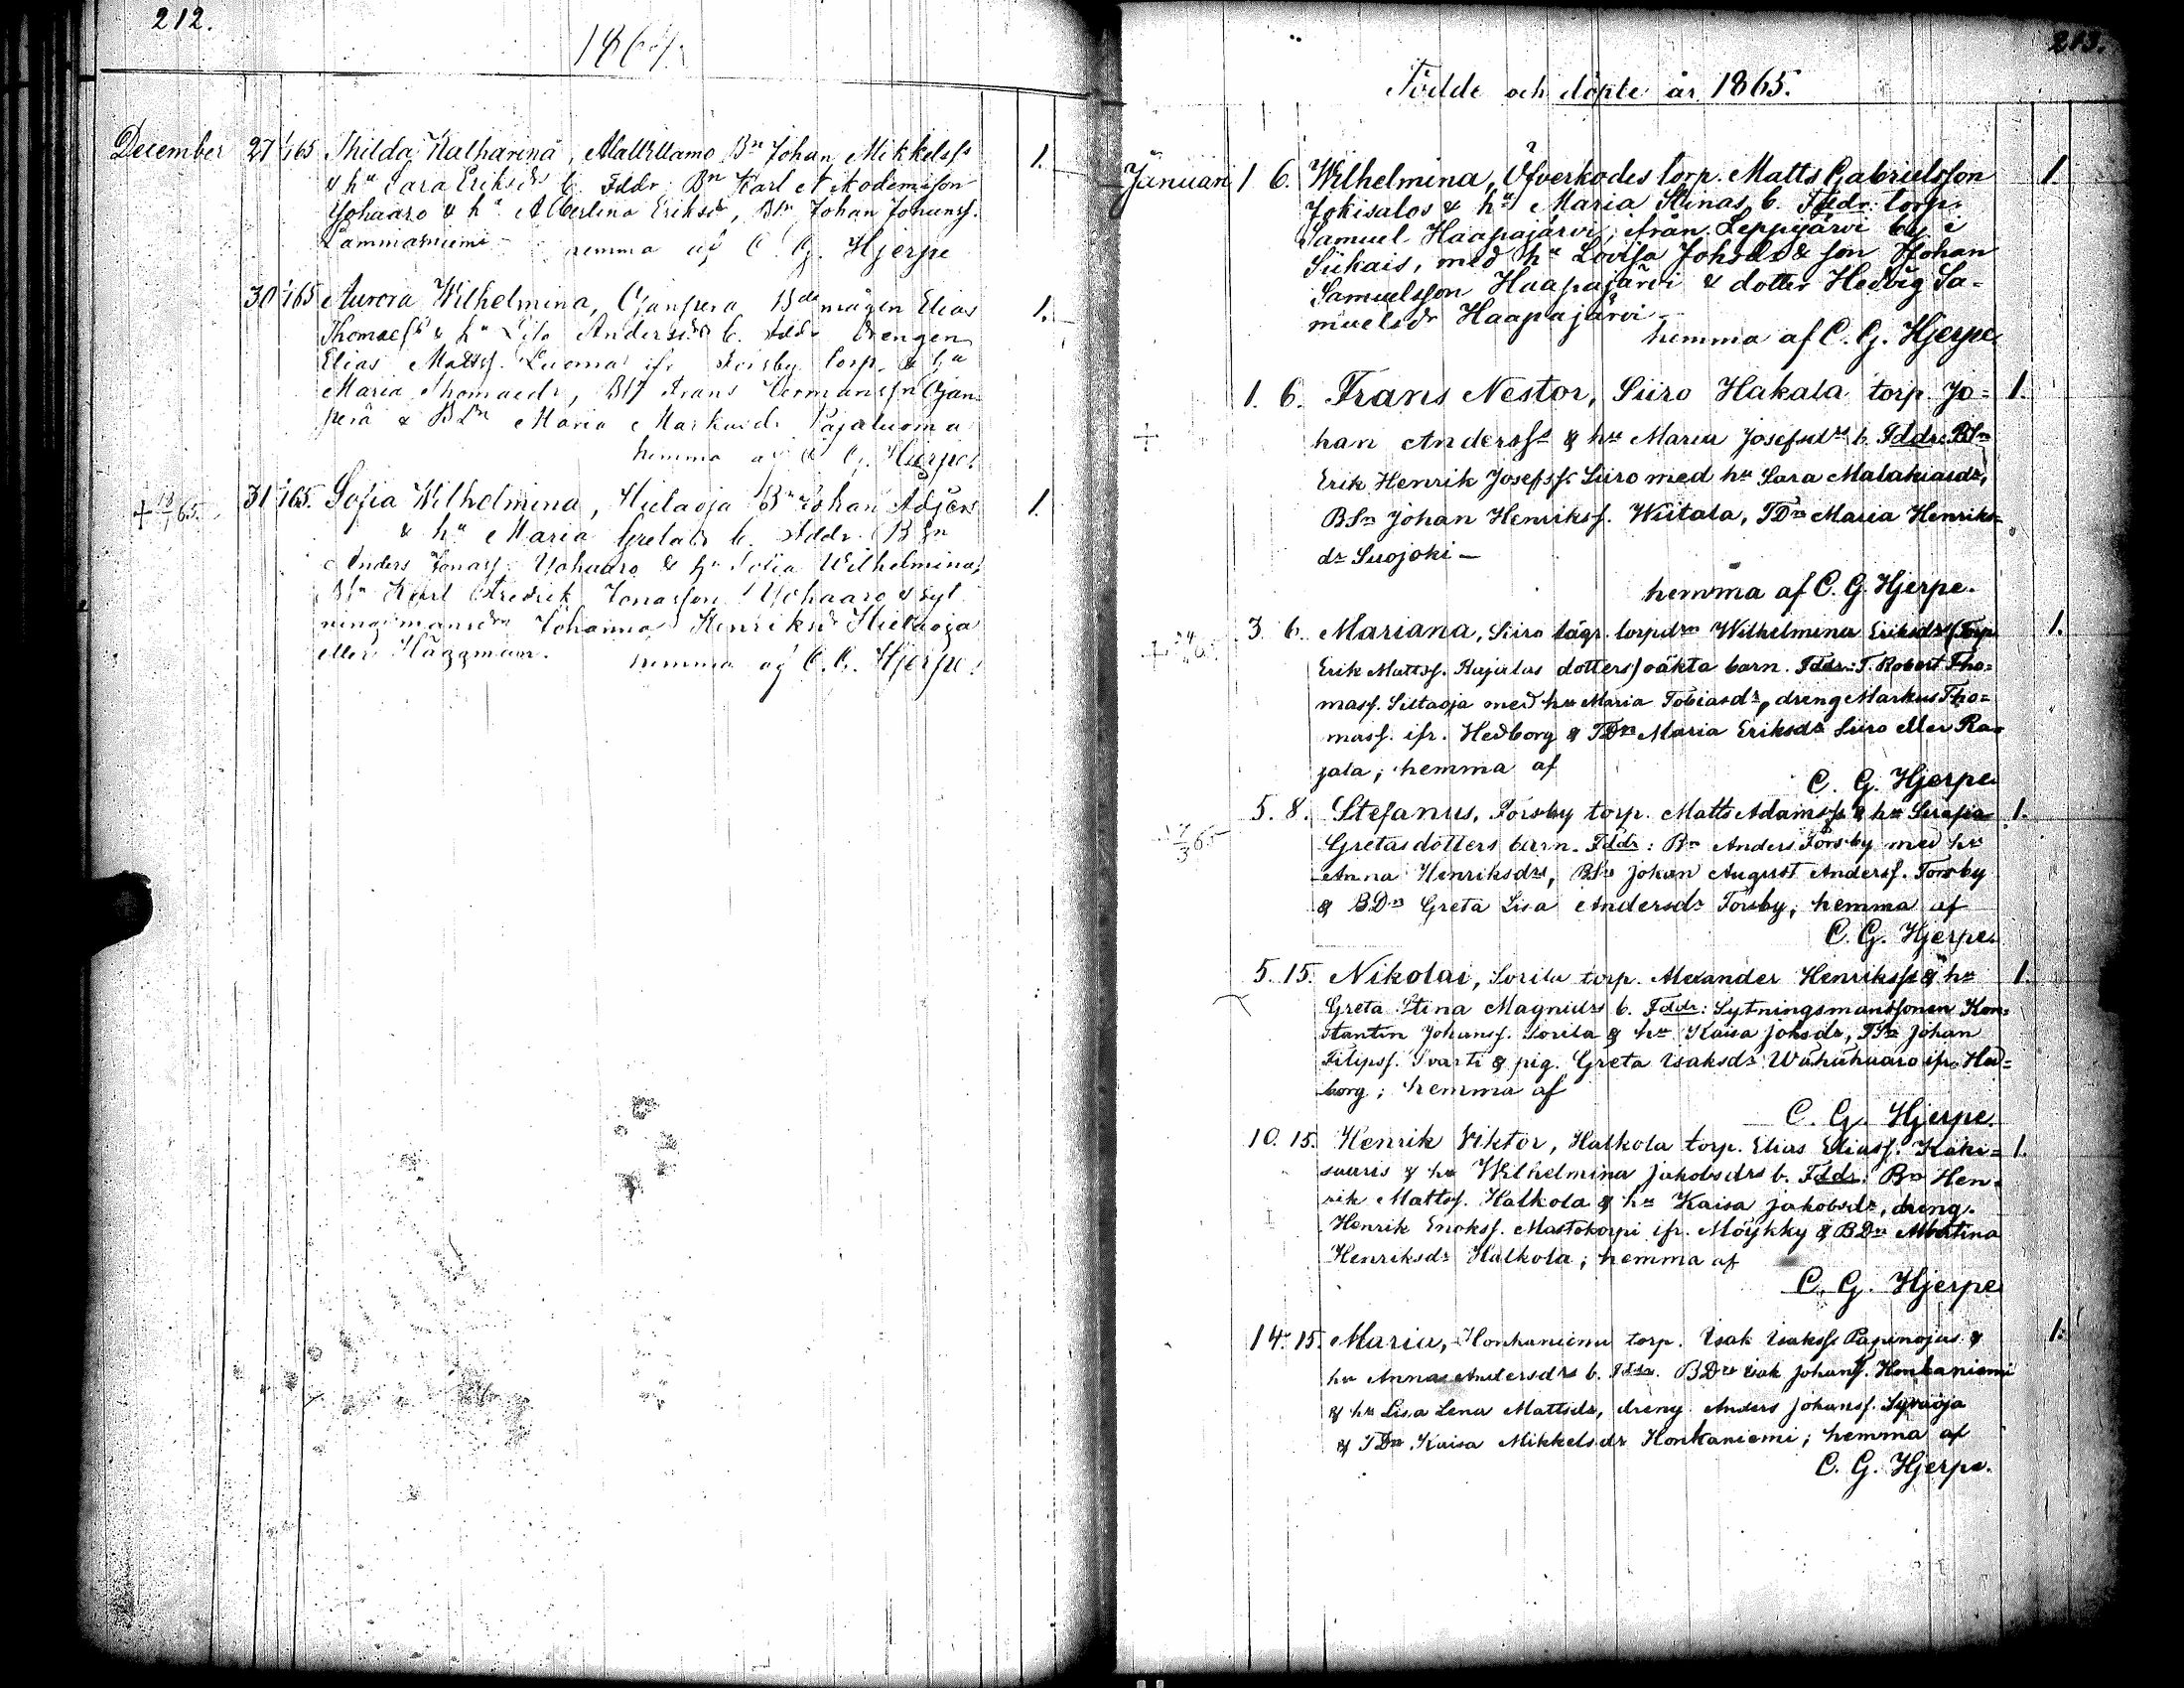 212.
1864.
December 27 1/1 65 Thilda Katharina, AlaWillamo Bn Johan Mikkelss
& hu Sara Eriksdrs b. Fddr Bn Karl Nikodemisson
Yohaaro & hu Albertina Eriksdr, BSn Johan Johanss.
Lammasniemi hemma af C. G. Hjerpe
30 65 Aurora Wilhelmina, Ojanperä Bde mågen Elias
Thomaess & hu Lisa Andersdrs b. Fddr Drengen
Elias Mattss. Luoma ifr Torsby torp. & hu
Maria Thomaedr, BS Frans Hermanssn Ojan-
perä & BDn Maria Markusdr Pajaluoma
hemma af C. G. Hjerpe.
+ 18/1 65. 31 65. Sofia Wilhelmina, Hietaoja Bn Johan
& hu Maria Gretas b. Fddr. BSn
Anders Jonass. Yohaaro & hu Sofia Wilhelmina,
BSn Karl Fredrik Jonasson Yohaaro & syt
ningsmansdn Johanna Henriksdr Hietaoja
eller Häggman. hemma af C. G. Hjerpe.
213.
Födde och döpte år 1865.
Januari 1 6. Wilhelmina, Öfverkodes torp. Matts Gabrielsson 1.
Jokisalos & hu Maria Stinas b. Fddr: torp.
Samuel Haapajärvi, ifrån Leppijärvi by i
Siikais, med hu Lovisa Johsdr & son Johan
Samuelsson Haapajärvi & dotter Hedvig Sa-
muelsdr Haapajärvi
hemma af C. G. Hjerpe.
1. 6. Frans Nestor, Siiro Hakala torp. Jo= 1.
+ han Anderss & hu Maria Josefsdrs b. Fddr: BSn
Erik Henrik Josefss. Siiro med hu Sara Malakiasdr,
BSn Johan Henrikss. Wiitala, TDn Maria Henriks=
dr Suojoki —
hemma af C. G. Hjerpe.
3. 6. Mariana, Siiro lägr. torpdrn Wilhelmina Eriksdrs (Torp. 1.
Erik Mattss. Rajalas dotters) oäkta barn. Fddr: T. Robert Tho=
mass. Siltaoja med hu Maria Tobiasdr, dreng Markus Tho=
mass. ifr. Hedborg & TDn Maria Eriksdr Siiro eller Ra=
jala; hemma af
C. G. Hjerpe.
5. 8. Stefanus, Torsby torp. Matts Adamss & hu Serafia 1.
Gretasdotters barn. Fddr: Bn Anders Torsby med hu
Anna Henriksdrs, BSn Johan August Anderss. Torsby
& BDn Greta Lisa Andersdr Torsby; hemma af
C. G. Hjerpe.
5. 15. Nikolai, Sorila torp. Alexander Henrikss & hu 1.
Greta Stina Magnidrs b. Fddr: Sytningsmanssonen Kon=
stantin Johanss. Sorila & hu Kaisa Johsdr, TSn Johan
Filipss. Svarti & pig. Greta Isaksdr Wähähaaro ifr. Hed=
borg; hemma af
C. G. Hjerpe.
10. 15. Henrik Viktor, Halkola torp. Elias Eliass. Koki= 1.
saaris & hu Wilhelmina Jakobsdrs b. Fddr: Bn Hen=
rik Mattss. Halkola & hu Kaisa Jakobsdr, dreng.
Henrik Enokss. Mastokorpi ifr. Möykky & BDn Albertina
Henriksdr Halkola; hemma af
C. G. Hjerpe
14. 15. Maria, Honkaniemi torp. Isak Isakss Papinojas & 1.
hu Annas Andersdrs b. Fddr. Isak Johanss. Honkaniemi
& hu Lisa Lena Mattsdr, dreng Anders Johanss. Syväoja
& TDn Kaisa Mikkelsdr Honkaniemi; hemma af
C. G. Hjerpe.